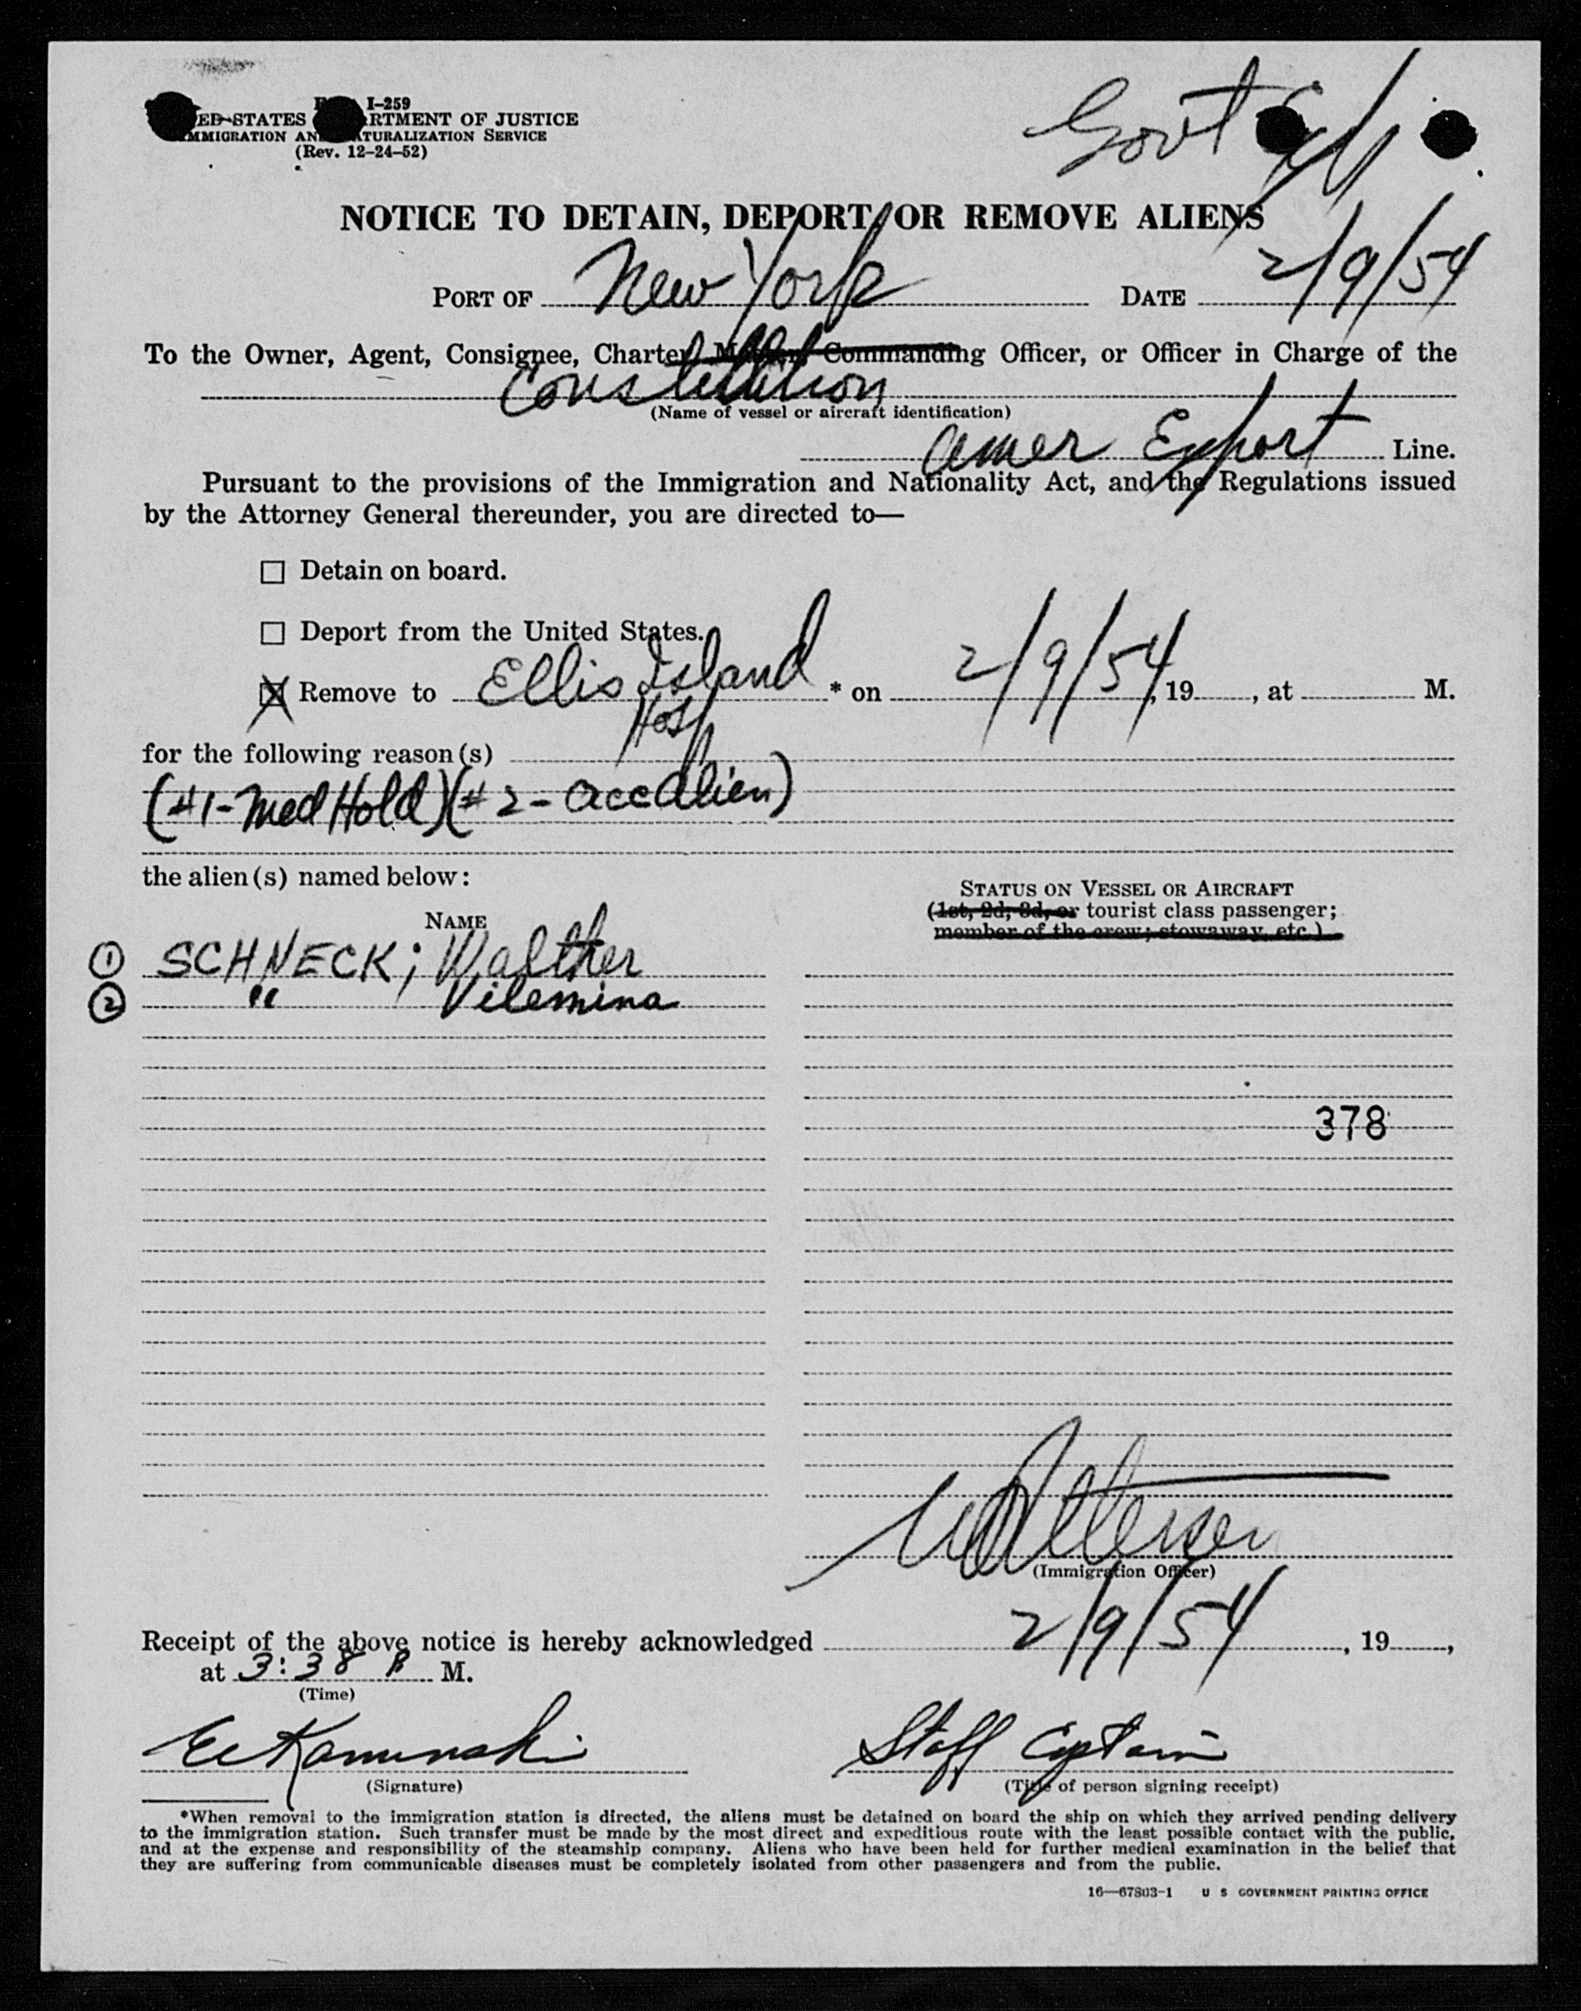 I-259
STATES DEPARTMENT OF JUSTICE
IMMIGRATION AND NATURALIZATION SERVICE
(Rev. 12-24-52)
Gov't
NOTICE TO DETAIN, DEPORT, OR REMOVE ALIENS
PORT OF New York DATE 2/9/54
To the Owner, Agent, Consignee, Charter, Commanding Officer, or Officer in Charge of the
Constitution
(Name of vessel or aircraft identification)
Amer Export Line.
Pursuant to the provisions of the Immigration and Nationality Act, and the Regulations issued
by the Attorney General thereunder, you are directed to—
☐ Detain on board.
☐ Deport from the United States.
☒ Remove to Ellis Island * on 2/9/54, 19, at M.
Hosp
for the following reason(s)
(#1-Med Hold) (#2-acc alien)
the alien(s) named below:
STATUS ON VESSEL OR AIRCRAFT
(1st, 2d, 3d, or tourist class passenger;
member of the crew; stowaway, etc.)
NAME
① SCHNECK; Walther
② " Vilemina
378
(Immigration Officer)
Receipt of the above notice is hereby acknowledged 2/9/54, 19,
at 3:38 P M.
(Time)
Kaminski Staff Captain
(Signature) (Title of person signing receipt)
*When removal to the immigration station is directed, the aliens must be detained on board the ship on which they arrived pending delivery
to the immigration station. Such transfer must be made by the most direct and expeditious route with the least possible contact with the public,
and at the expense and responsibility of the steamship company. Aliens who have been held for further medical examination in the belief that
they are suffering from communicable diseases must be completely isolated from other passengers and from the public.
16—67803-1 U S GOVERNMENT PRINTING OFFICE